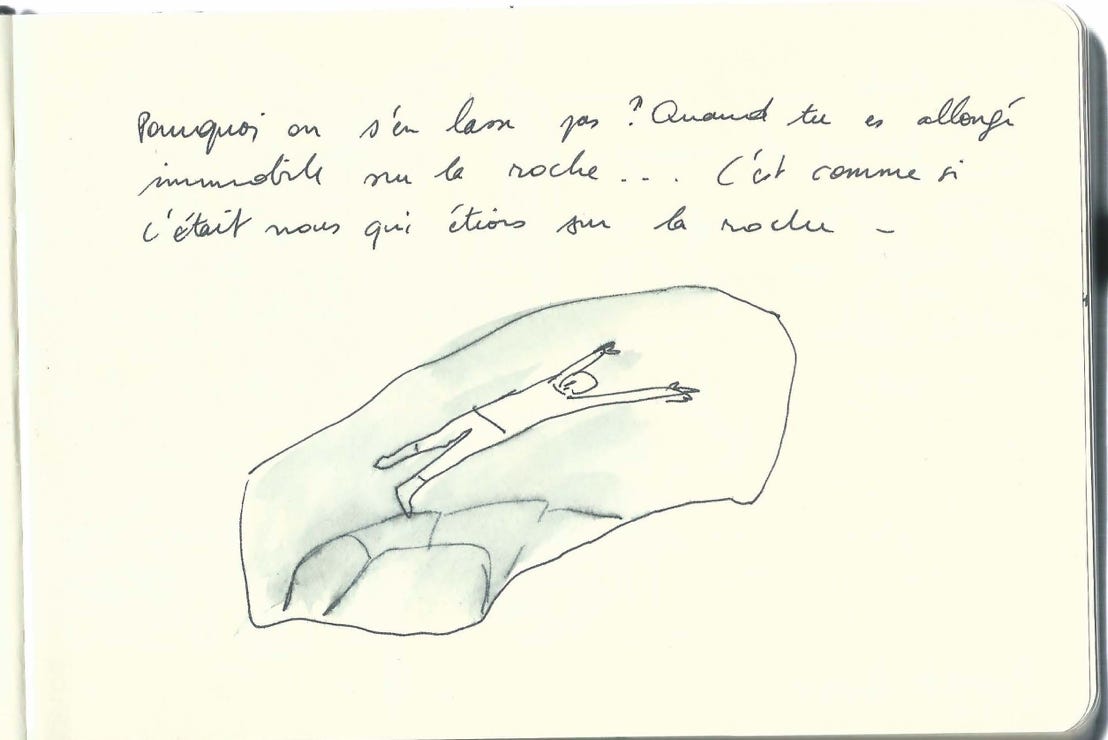 Pourquoi on s'en lasse pas ? Quand tu es allongé
immobile sur la roche... C'est comme si
c'était nous qui étions sur la roche -